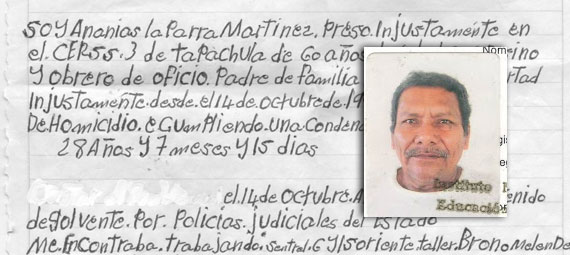 SOY Ananias laParra Martinez. Preso. Injustamente en
el. CERSS. 3 de taPachula de 60 años
Y obrero de oficio. Padre de familia
Injustamente. desde. el 14 de octubre. de 19
De Homicidio. e Cumpliendo. una Condena
28 Años Y 7 meses Y 15 dias
el. 14 de Octubre. A
de solvente. Por. Policias. judiciales del Estado
Me. Encontraba. trabajando. Sentral. 6 Y 15 oriente. taller. Brono
Nom
Instituto
Educación